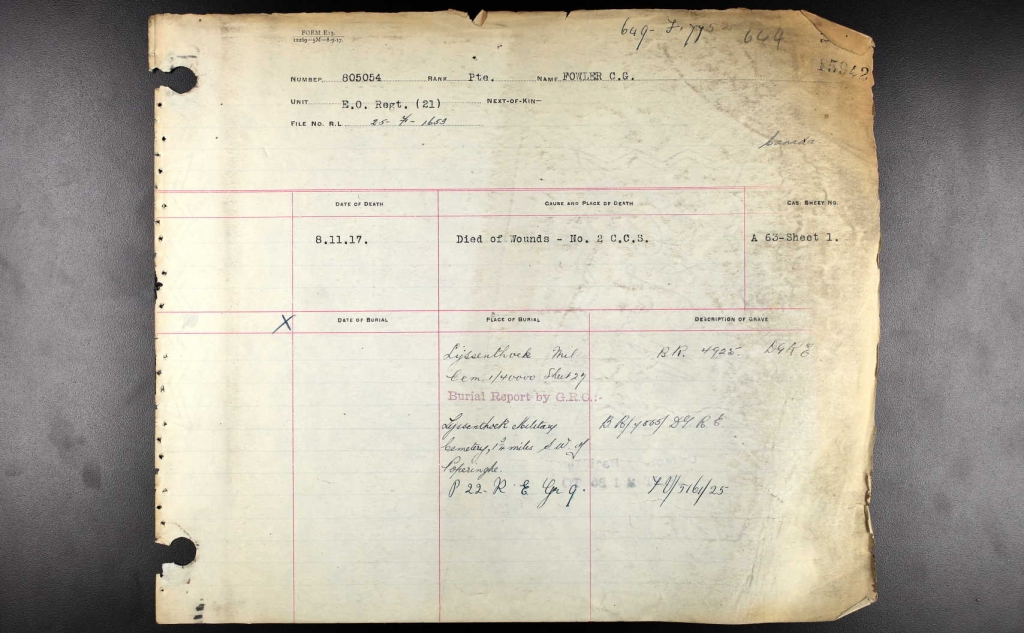 FORM E13.
649- F. 775 644
15942
NUMBER 805054 RANK Pte. NAME FOWLER C.G.
UNIT E.O. Regt. (21) NEXT-OF-KIN—
FILE NO. R.L. 25-F-1653
Canada
DATE OF DEATH CAUSE AND PLACE OF DEATH CAS. SHEET NO.
8.11.17. Died of Wounds - No. 2 C.C.S. A 63-Sheet 1.
X DATE OF BURIAL PLACE OF BURIAL DESCRIPTION OF GRAVE
Lijssenthoek Mil B.R. 4925. DGR & E
Cem. 1/40000 Sheet 27
Burial Report by G.R.O.:-
Lijssenthoek Military
Cemetery, 1¾ miles S.W. of
Poperinghe.
P 22. R. E. Gr 9.